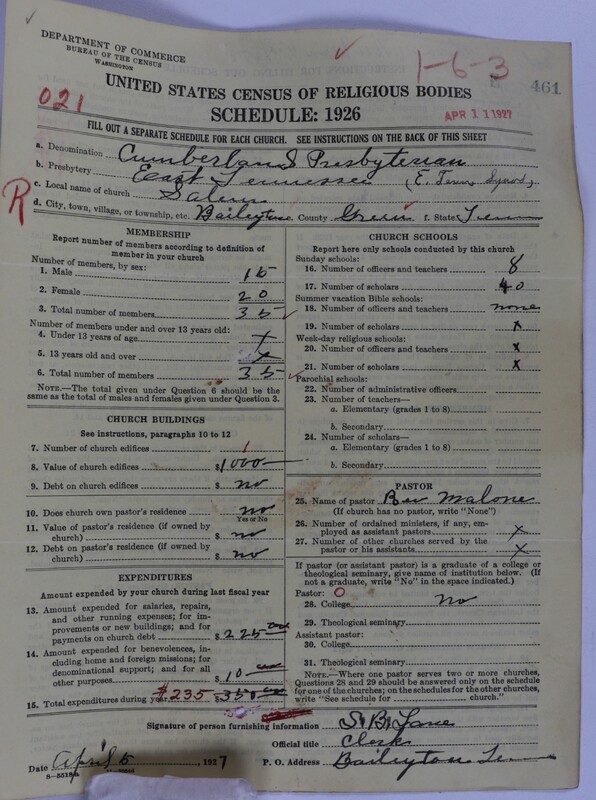 DEPARTMENT OF COMMERCE
BUREAU OF THE CENSUS
WASHINGTON
1-6-3
461
UNITED STATES CENSUS OF RELIGIOUS BODIES
021
SCHEDULE: 1926
APR 11 1927
FILL OUT A SEPARATE SCHEDULE FOR EACH CHURCH. SEE INSTRUCTIONS ON THE BACK OF THIS SHEET
a. Denomination Cumberland Presbyterian
b. Presbytery East Tennessee (E. Tenn. Synod)
c. Local name of church Salem
R
d. City, town, village, or township, etc. Baileyton County Green f. State Tenn
MEMBERSHIP
Report number of members according to definition of member in your church
Number of members, by sex:
1. Male 15
2. Female 20
3. Total number of members 35
Number of members under and over 13 years old:
4. Under 13 years of age x
5. 13 years old and over x
6. Total number of members 35
NOTE.—The total given under Question 6 should be the
same as the total of males and females given under Question 3.
CHURCH BUILDINGS
See instructions, paragraphs 10 to 12
7. Number of church edifices 1
8. Value of church edifices $1000
9. Debt on church edifices $ no
10. Does church own pastor's residence no
Yes or No
11. Value of pastor's residence (if owned by
church) $ no
12. Debt on pastor's residence (if owned by
church) $ no
EXPENDITURES
Amount expended by your church during last fiscal year
13. Amount expended for salaries, repairs,
and other running expenses; for im-
provements or new buildings; and for
payments on church debt $ 225
14. Amount expended for benevolences, in-
cluding home and foreign missions; for
denominational support; and for all
other purposes $ 10
15. Total expenditures during year $235 350
CHURCH SCHOOLS
Report here only schools conducted by this church
Sunday schools:
16. Number of officers and teachers 8
17. Number of scholars 40
Summer vacation Bible schools:
18. Number of officers and teachers none
19. Number of scholars x
Week-day religious schools:
20. Number of officers and teachers x
21. Number of scholars x
Parochial schools:
22. Number of administrative officers
23. Number of teachers—
a. Elementary (grades 1 to 8)
b. Secondary
24. Number of scholars—
a. Elementary (grades 1 to 8)
b. Secondary
PASTOR
25. Name of pastor Malone
(If church has no pastor, write "None")
26. Number of ordained ministers, if any, em-
ployed as assistant pastors x
27. Number of other churches served by the
pastor or his assistants x
If pastor (or assistant pastor) is a graduate of a college or
theological seminary, give name of institution below. (If
not a graduate, write "No" in the space indicated.)
Pastor: O
28. College No
29. Theological seminary
Assistant pastor:
30. College
31. Theological seminary
NOTE.—Where one pastor serves two or more churches,
Questions 28 and 29 should be answered only on the schedule
for one of the churches; on the schedules for the other churches,
write "See schedule for church."
Signature of person furnishing information Lane
Official title Clerk
Date April 5, 1927 P. O. Address Baileyton Tenn